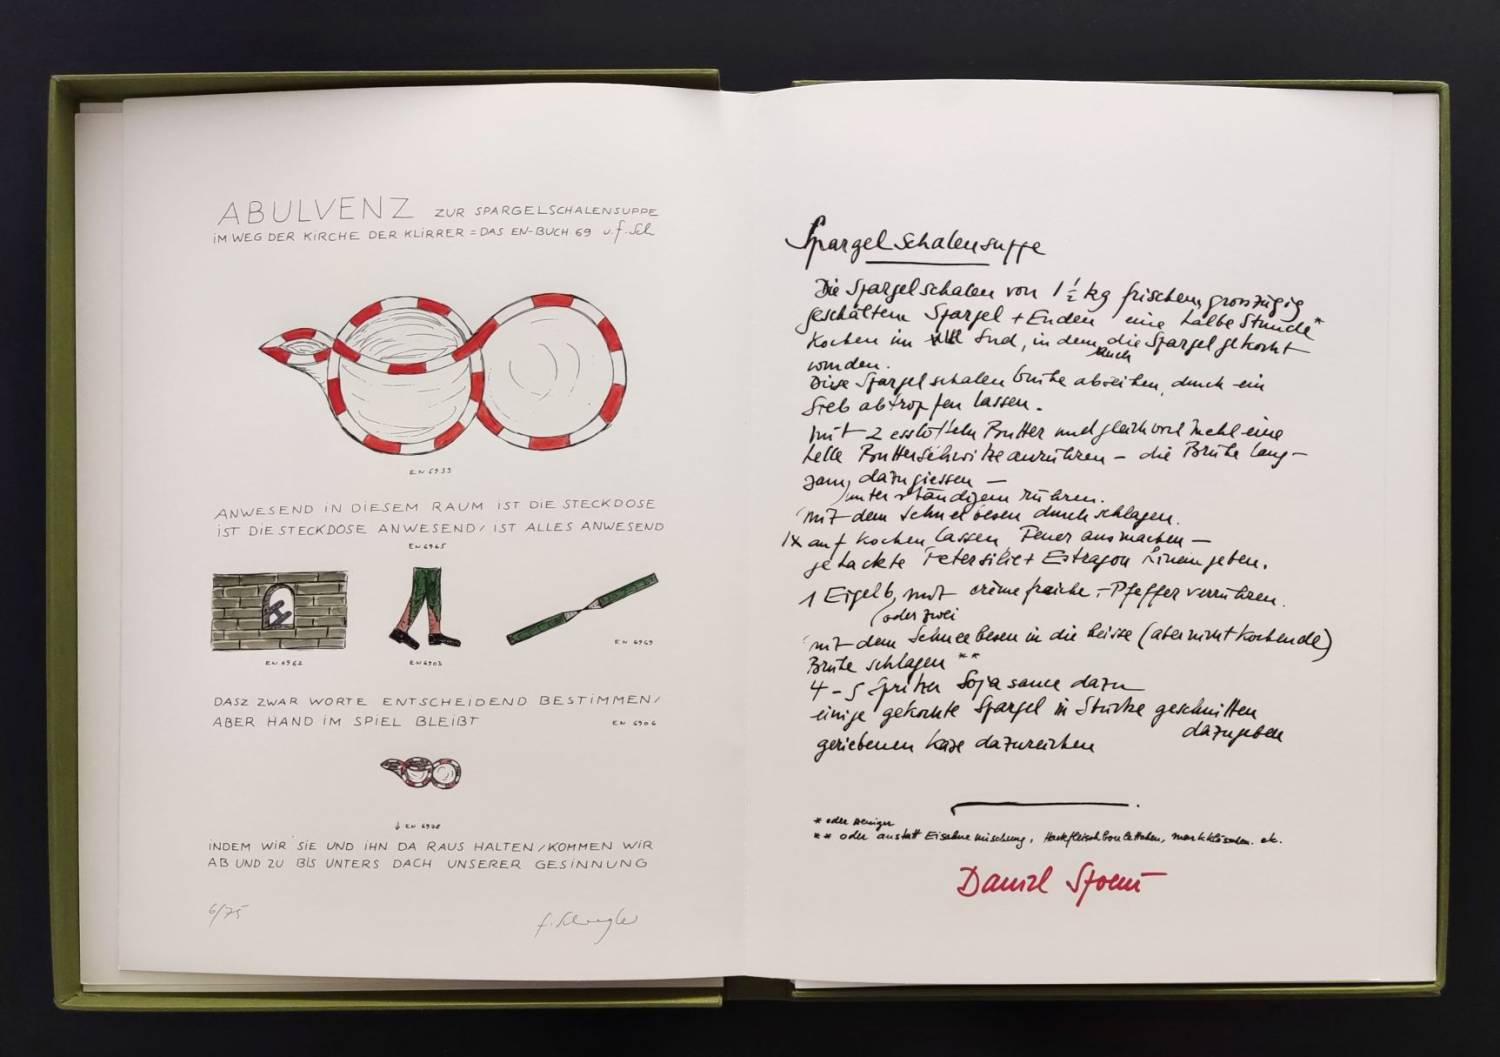 ABULVENZ ZUR SPARGELSCHALENSUPPE
IM WEG DER KIRCHE DER KLIRRER = DAS EN-BUCH 69 v. f. Sch
EN 6933
ANWESEND IN DIESEM RAUM IST DIE STECKDOSE
IST DIE STECKDOSE ANWESEND / IST ALLES ANWESEND
EN 6965
EN 6962
EN 6903
EN 6969
DASZ ZWAR WORTE ENTSCHEIDEND BESTIMMEN /
ABER HAND IM SPIEL BLEIBT
EN 6906
↓ EN 6928
INDEM WIR SIE UND IHN DA RAUS HALTEN / KOMMEN WIR
AB UND ZU BIS UNTERS DACH UNSERER GESINNUNG
6/75
Spargelschalensuppe
Die Spargelschalen von 1 ½ kg frischem, grosszügig
geschältem Spargel + Enden eine halbe Stunde*
kochen im Sud, in dem die Spargel gekocht
auch
wurden.
Diese Spargelschalen Brühe abseihen, durch ein
Sieb abtropfen lassen.
mit 2 esslöffeln Butter und gleichviel Mehl eine
helle Butterschwitze anrühren – die Brühe lang-
sam, dazugiessen –
unter ständigem rühren.
mit dem Schneebesen durchschlagen.
1x aufkochen lassen Feuer ausmachen –
gehackte Petersilie + Estragon hineingeben.
1 Eigelb, mit crème fraiche – Pfeffer verrühren.
(oder zwei
mit dem Schneebesen in die heisse (aber nicht kochende)
Brühe schlagen **
4 – 5 Spritzer Sojasauce dazu
einige gekochte Spargel in Stücke geschnitten
dazugeben
geriebenen Käse dazureichen
* oder weniger
** oder anstatt Eicrème mischung, Hackfleischbouletten, markklösschen. etc.
Daniel Spoerri